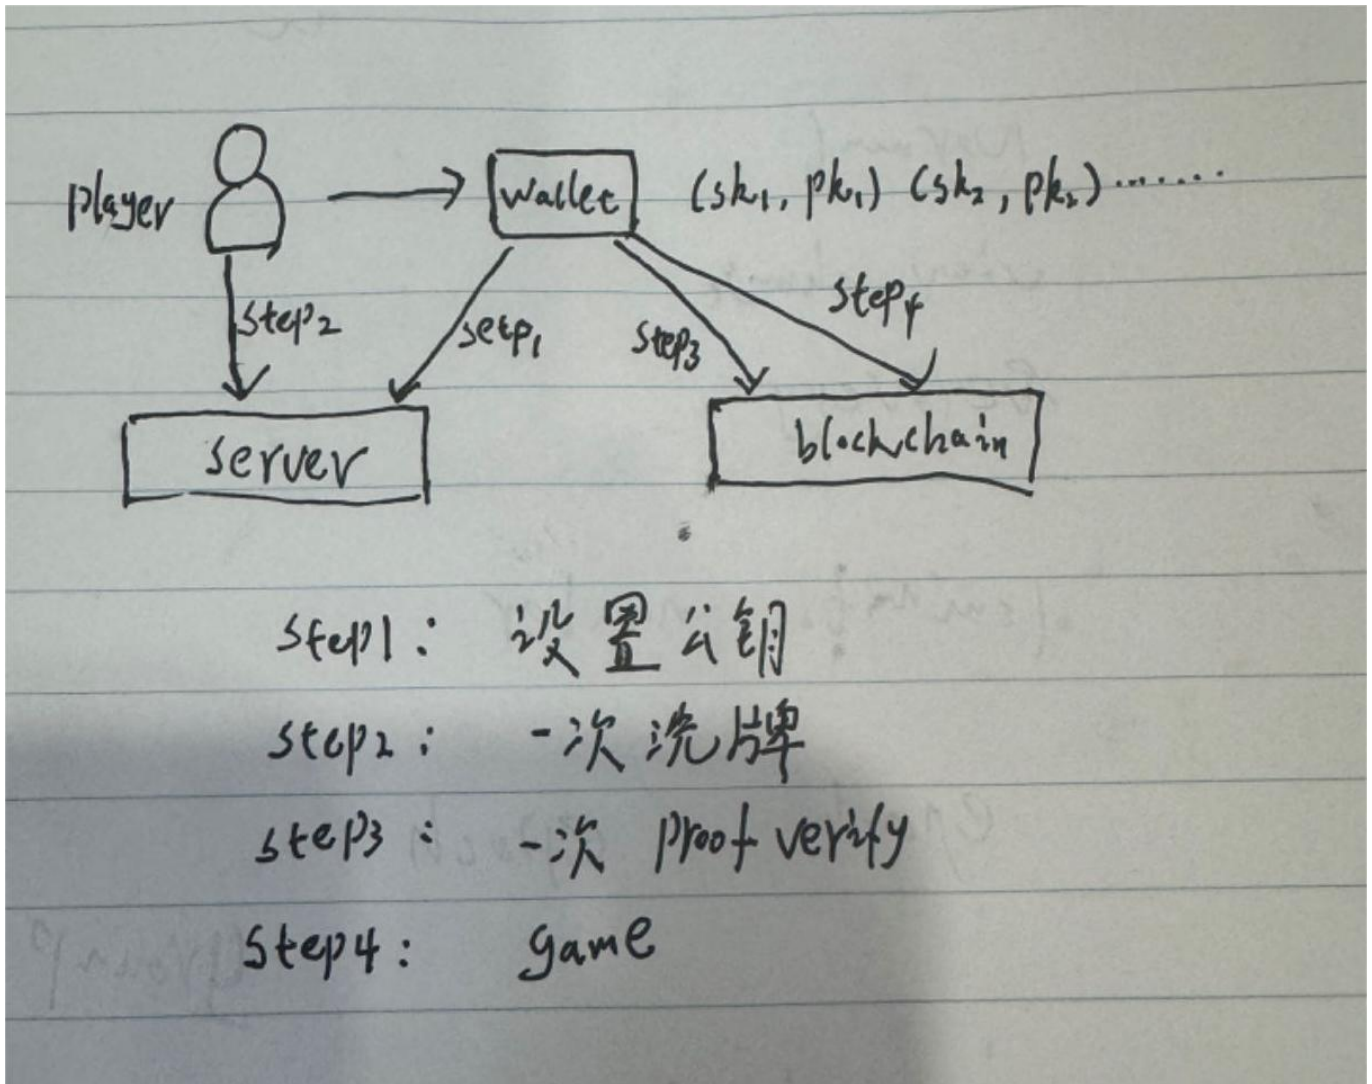 player
wallet
(sk1, pk1) (sk2, pk2).......
step2
setp1
step3
step4
server
blockchain
step1: 设置公钥
step2: 一次洗牌
step3: 一次 proof verify
step4: game